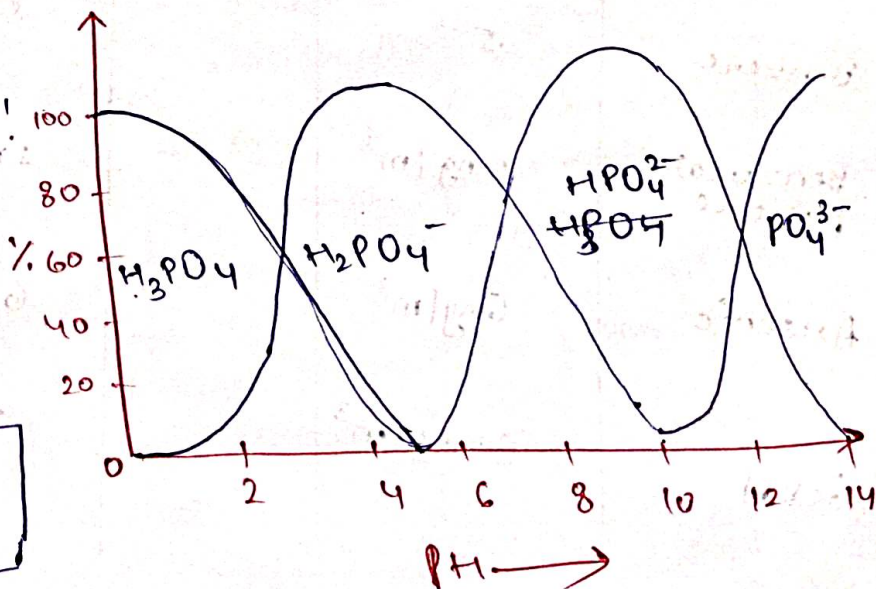 100
80
% 60
40
20
0
H3PO4
H2PO4-
HPO4^2-
H3PO4
PO4^3-
2 4 6 8 10 12 14
PH